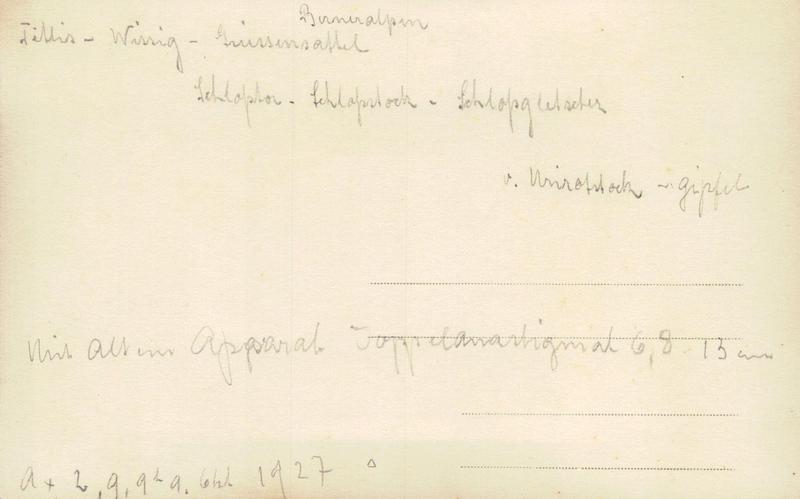 Berneralpen
Titlis - Wissig - Grassensattel
Schlosstor - Schlosstock - Schlossgletscher
v. Urirotstock - gipfel
Mit Altem Apparat Doppelanastigmat 6,8 13 cm
2, 9, 9h 9. Okt 1927